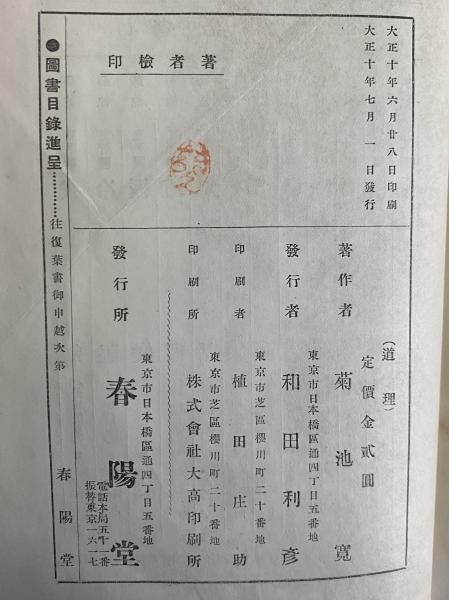 大正十年六月廿八日印刷
大正十年七月一日發行
著者檢印
(道理)
定價金貳圓
著作者 菊池寬
東京市日本橋區通四丁目五番地
發行者 和田利彥
東京市芝區櫻川町二十番地
印刷者 植田庄助
東京市芝區櫻川町二十番地
印刷所 株式會社大高印刷所
東京市日本橋區通四丁目五番地
發行所 春陽堂
電話本局五十一番
振替東京一六一七
●圖書目錄進呈…………往復葉書御申越次第 春陽堂